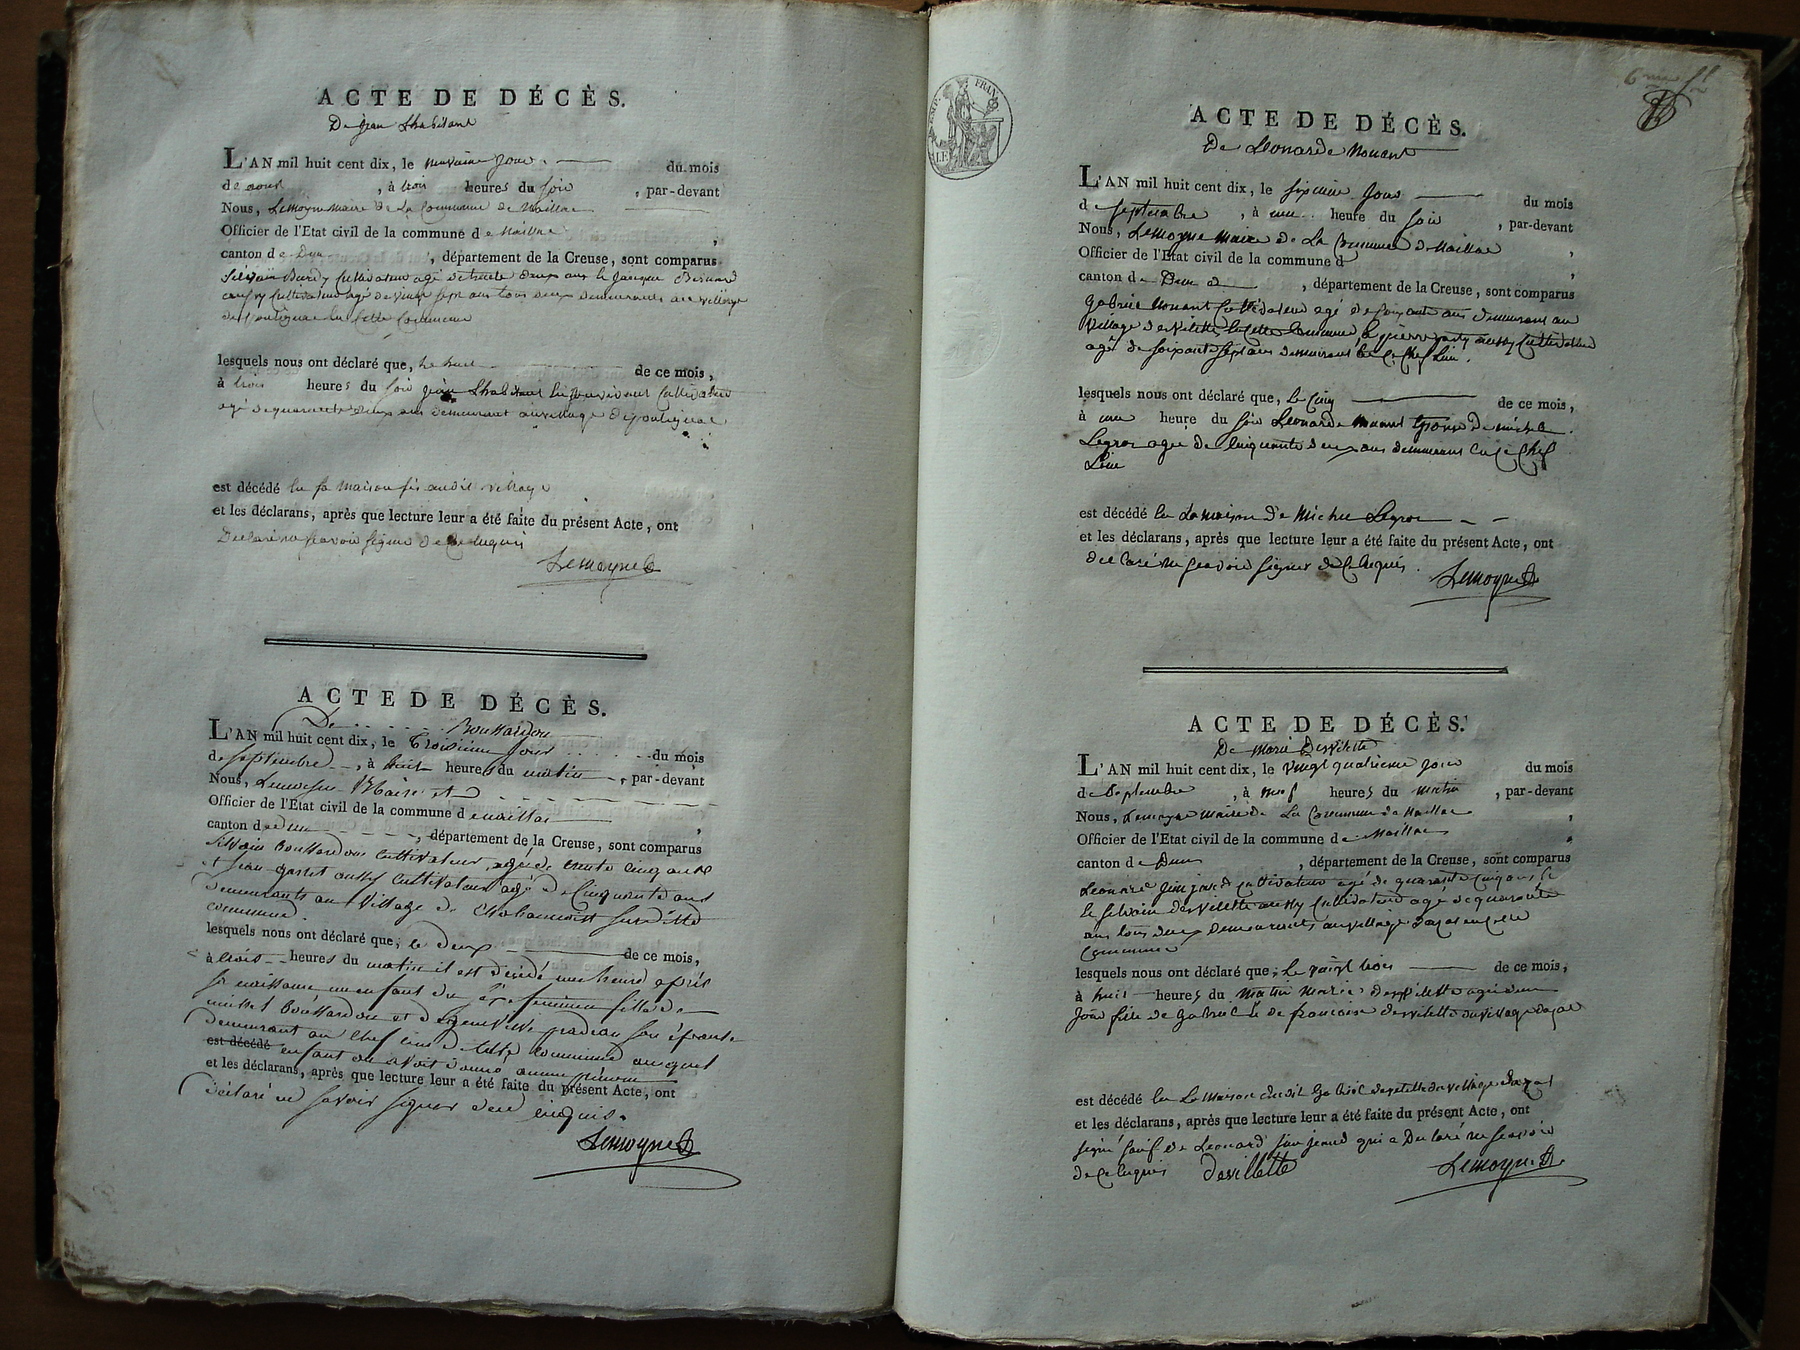 ACTE DE DÉCÈS.
De Jean Lhabitant
L'AN mil huit cent dix, le neuvieme jour du mois
de aout, à trois heures du soir, par-devant
Nous, Lemoyne maire de La Commune de Naillac
Officier de l'Etat civil de la commune de Naillac,
canton de Dun, département de la Creuse, sont comparus
Silvain Bardy Cultivateur agé de trente deux ans & Jacques
Cultivateur agé de vingt sept ans tous deux demeurants au village
en Cette Commune
lesquels nous ont déclaré que, le huit de ce mois,
à trois heures du soir Jean Lhabitant Cultivateur
agé de quarante deux ans demeurant au village
est décédé en sa maison sis audit village
et les déclarans, après que lecture leur a été faite du présent Acte, ont
Declaré ne seavoir signer de Ce Enquis
Lemoyne
ACTE DE DÉCÈS.
De Boussardon
L'AN mil huit cent dix, le troisieme jour du mois
de septembre, à huit heures du matin, par-devant
Nous, Lemoyne Maire et
Officier de l'Etat civil de la commune de naillac,
canton de dun, département de la Creuse, sont comparus
silvain boussardon cultivateur, agé de trente cinq ans
et jean aussy cultivateur agé de Cinquante ans
demeurants au village de susditte
commune.
lesquels nous ont déclaré que, le deux de ce mois,
à trois heures du matin il est décédé une heure après
sa naissance un enfant du sexe feminin fille de
michel boussardon et de genevieve pradeau son épouse
demeurant au chef lieu de cette commune auquel
est décédé enfant on avoit donné aucun prénom
et les déclarans, après que lecture leur a été faite du présent Acte, ont
déclaré ne savoir signer de ce enquis.
Lemoyne
6me fl
ACTE DE DÉCÈS.
De Leonarde Nouant
L'AN mil huit cent dix, le sixieme Jour du mois
de septembre, à une heure du soir, par-devant
Nous, Lemoyne maire de La Commune de Naillac,
Officier de l'Etat civil de la commune d,
canton de Dun, département de la Creuse, sont comparus
Gabriel Nouant Cultivateur agé de soixante ans demeurant au
village de en Cette Commune & pierre aussy Cultivateur
agé de soixante sept ans demeurant en Ce Chef Lieu.
lesquels nous ont déclaré que, Le Cinq de ce mois,
à une heure du soir Leonarde Nouant Epouse De michel
Legros agée de Cinquante deux ans demeurant en Ce Chef
Lieu
est décédé en La maison de Michel Legros
et les déclarans, après que lecture leur a été faite du présent Acte, ont
declaré ne seavoir signer de Ce Enquis.
Lemoyne
ACTE DE DÉCÈS.
De Marie Desvilette
L'AN mil huit cent dix, le vingt quatrieme jour du mois
de Septembre, à neuf heures du matin, par-devant
Nous, Lemoyne maire de La Commune de Naillac,
Officier de l'Etat civil de la commune de Naillac,
canton de Dun, département de la Creuse, sont comparus
Leonard Cultivateur agé de quarante Cinq ans &
Silvain desvilette aussy Cultivateur agé de quarante
ans tous deux Demeurants au village en Cette
Commune
lesquels nous ont déclaré que, Le vingt trois de ce mois,
à huit heures du Matin Marie desvilette agée d'un
Jour fille de Gabriel & de francoise desvilette du village
est décédé en La Maison dudit Gabriel desvilette du village
et les déclarans, après que lecture leur a été faite du présent Acte, ont
signé sauf Leonard qui a Declaré ne seavoir
de Ce Enquis desvillette Lemoyne